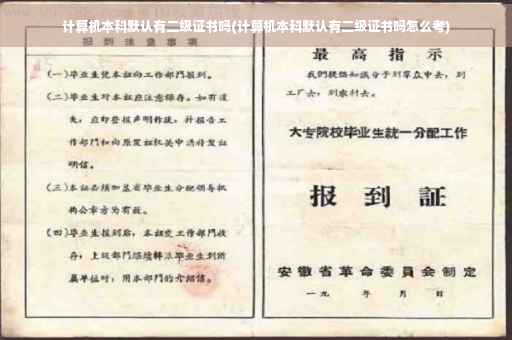 计算机本科默认有二级证书吗(计算机本科默认有二级证书吗怎么考)
报到注意事项
(一)毕业生凭本证向工作部门报到。
(二)毕业生对本证应注意保存。如有遗
失,应即登报声明作废,并报告工
作部门和向原发证机关申请补发证
明信。
(三)本证必须加盖省毕业生分配领导机
构公章方为有效。
(四)毕业生报到后,本证交工作部门收
存,上级部门继续转派毕业生到所
属单位时,用本部门的介绍信。
最高指示
我们提倡知识分子到群众中去,到
工厂去,到农村去。
大专院校毕业生统一分配工作
报到証
安徽省革命委員会制定
一九 年 月 日